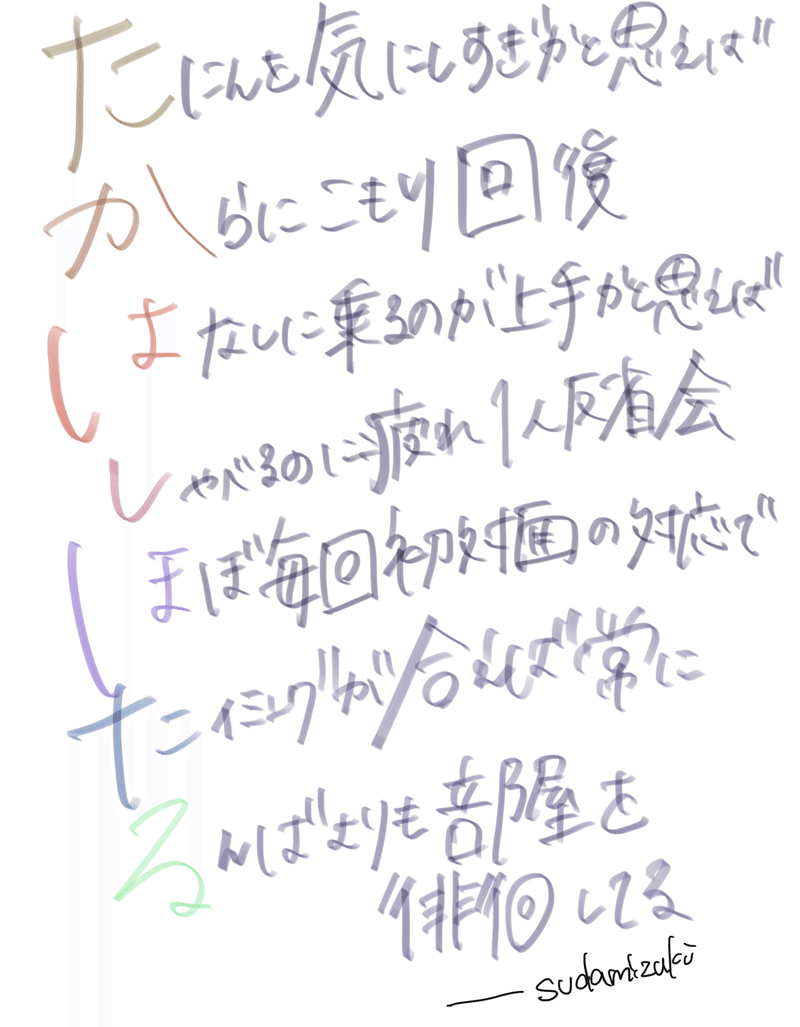 たにんを気にしすぎかと思えば
からにこもり回復
はなしに乗るのが上手かと思えば
しゃべるのに疲れ1人反省会
ほぼ毎回初対面の対応で
たイミングが合えば常に
るんばよりも部屋を
徘徊してる
sudamizaki